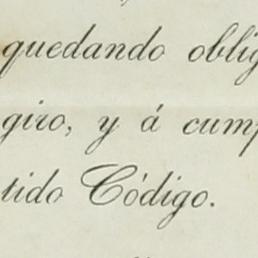 quedando oblig
giro, y á cump
tido Código.